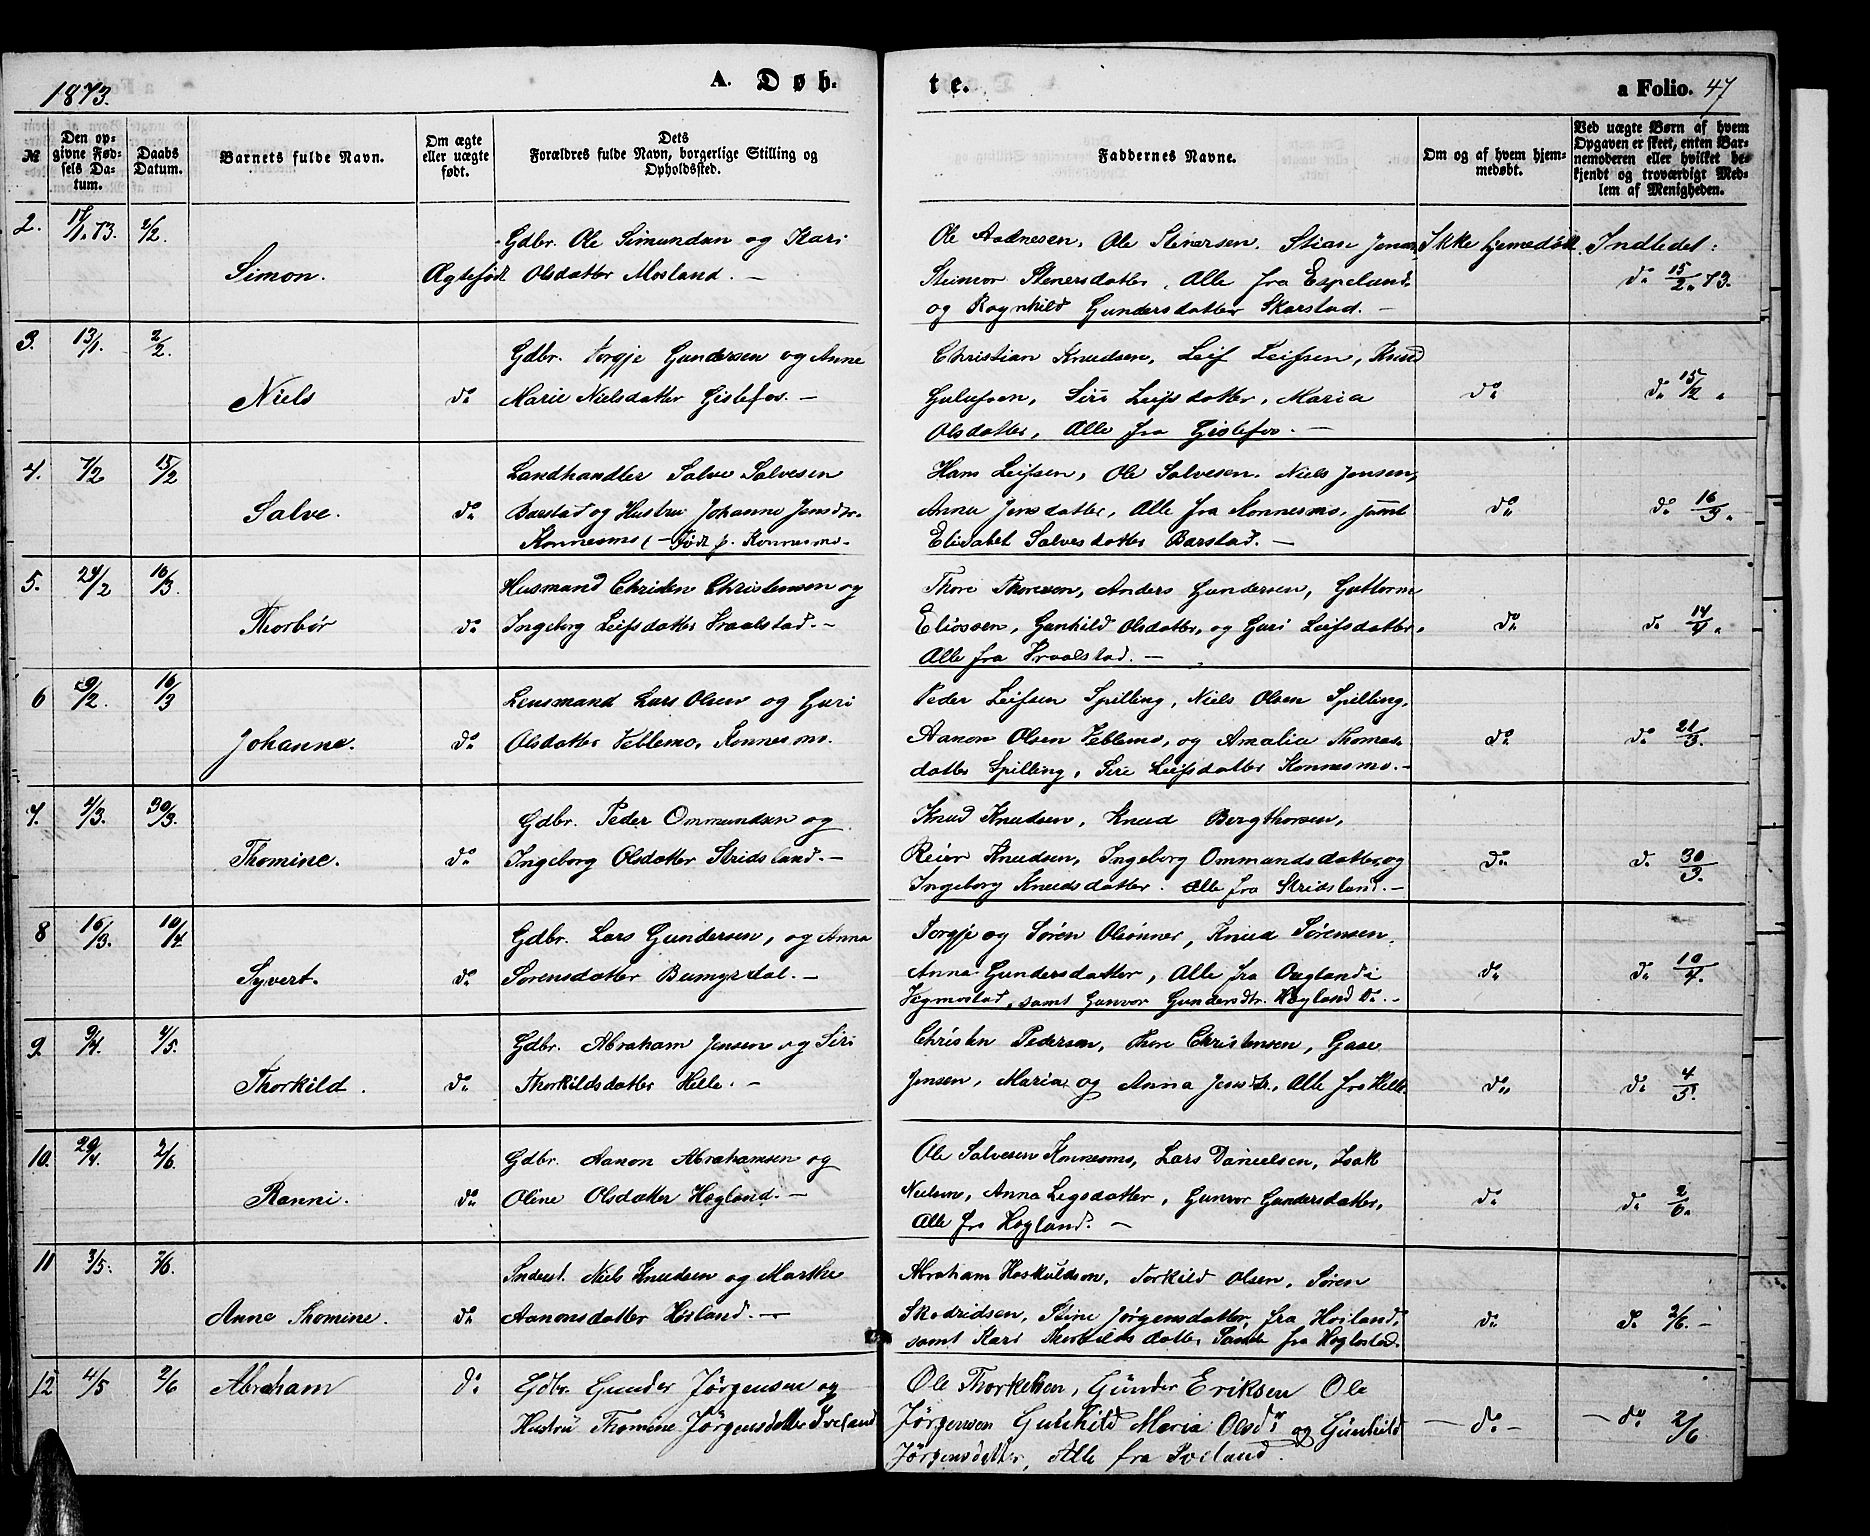 1873.
A. Døb-
te.
a Folio. 47
№
Den op-
givne Fød-
sels Da-
tum.
Daabs
Datum.
Barnets fulde Navn.
Om ægte
eller uægte
født.
Dets
Forældres fulde Navn, borgerlige Stilling og
Opholdssted.
Faddernes Navne.
Om og af hvem hjem-
medøbt.
Ved uægte Børn af hvem
Opgaven er skeet, enten Bar-
nemoderen eller hvilket be-
kjendt og troværdigt Med-
lem af Menigheden.
2. 17/1. 73. 2/2.
Simon.
Ægtefødt
Gdbr. Ole Simundsen og Kari
Olsdatter Mosland. —
Ole Aadnesen, Ole Stenersen, Stian Jensen
Steinvor Stenersdatter, Alle fra Espeland,
og Ragnhild Gundersdatter Skarstad. —
Ikke hjemedøbt
Indledet:
do 15/2. 73.
3. 13/1. 2/2.
Niels
do
Gdbr. Torgje Gundersen og Anne
Marie Nielsdatter Gislefos. —
Christian Knudsen, Leif Leifsen, Knud
Gulufsen, Siri Leifsdatter, Maria
Olsdatter, Alle fra Gislefos. —
do
do 15/2 „
4. 7/2 15/2
Salve.
do
Landhandler Salve Salvesen
Barstad og Hustru Johanne Jensdtr.
Konnesmo (— Født p. Konnesmo.
Hans Leifsen, Ole Salvesen, Niels Jensen,
Anna Jensdatter, Alle fra Konnesmo, samt
Elisabet Salvesdatter Barstad. —
do
do 16/3 „
5. 24/2 16/3.
Thorbør
do
Husmand Christen Christensen og
Ingeborg Leifsdatter Traalstad. —
Thore Thoresen, Anders Gundersen, Guttorm
Eliassen, Gunhild Olsdatter, og Guri Leifsdatter,
Alle fra Traalstad. —
do
do 14/4 „
6 9/2. 16/3
Johanne.
do
Lensmand Lars Olsen og Guri
Olsdatter Veblemo, Konnesmo.
Peder Leifsen Spilling, Niels Olsen Spilling,
Aanon Olsen Veblemo, og Amalia Thomas-
datter Spilling, Siri Leifsdatter Konnesmo. —
do
do 21/3.
7. 4/3. 30/3.
Thomine.
do
Gdbr. Peder Ommundsen og
Ingeborg Olsdatter Stridsland. —
Knud Knudsen, Knud Bergthorsen,
Reier Knudsen, Ingeborg Ommundsdatter, og
Ingeborg Knudsdatter. Alle fra Stridsland. —
do
do 30/3.
8 16/3. 10/4.
Syvert.
do
Gdbr. Lars Gundersen, og Anna
Sørensdatter —
Torgje og Søren Olsønner, Knud Sørensen,
Anna Gundersdatter, Alle fra
Vegmostad, samt Gunvor Gundersdtr. Høgland do. —
do
do 10/4.
9. 9/4. 4/5.
Thorkild.
do
Gdbr. Abraham Jensen og Siri
Thorkildsdatter Helle. —
Christen Pedersen, Thore Christensen, Gase
Jensen, Maria og Anna Jensdtr., Alle fra Helle.
do
do 4/5.
10. 29/4. 2/6.
Ranni.
do
Gdbr. Aanon Abrahamsen og
Oline Olsdatter Høgland. —
Ole Salvesen Konnesmo, Lars Danielsen, Isak
Nielsen, Anna Legsdatter, Gunvor Gundersdatter,
Alle fra Høgland. —
do
do 2/6.
11 3/5. 2/6.
Anne Thomine.
do
Inderst. Niels Knudsen og Marthe
Aanonsdatter Høiland. —
Abraham Hoskuldsen, Torkild Olsen, Søren
Skodridsen, Stine Jørgensdatter, fra Høiland,
samt Kari Thorkildsdatter fra Høglested.
do
do 2/6. —
12 4/5 2/6
Abraham
do
Gdbr. Gunder Jørgensen og
Hustru Thomine Jørgensdatter Sveland
Ole Thorkelsen, Gunder Eriksen Ole
Jørgensen Gunhild Maria Olsdr og Gunhild
Jørgensdatter, Alle fra Sveland.
— do —
— do 2/6